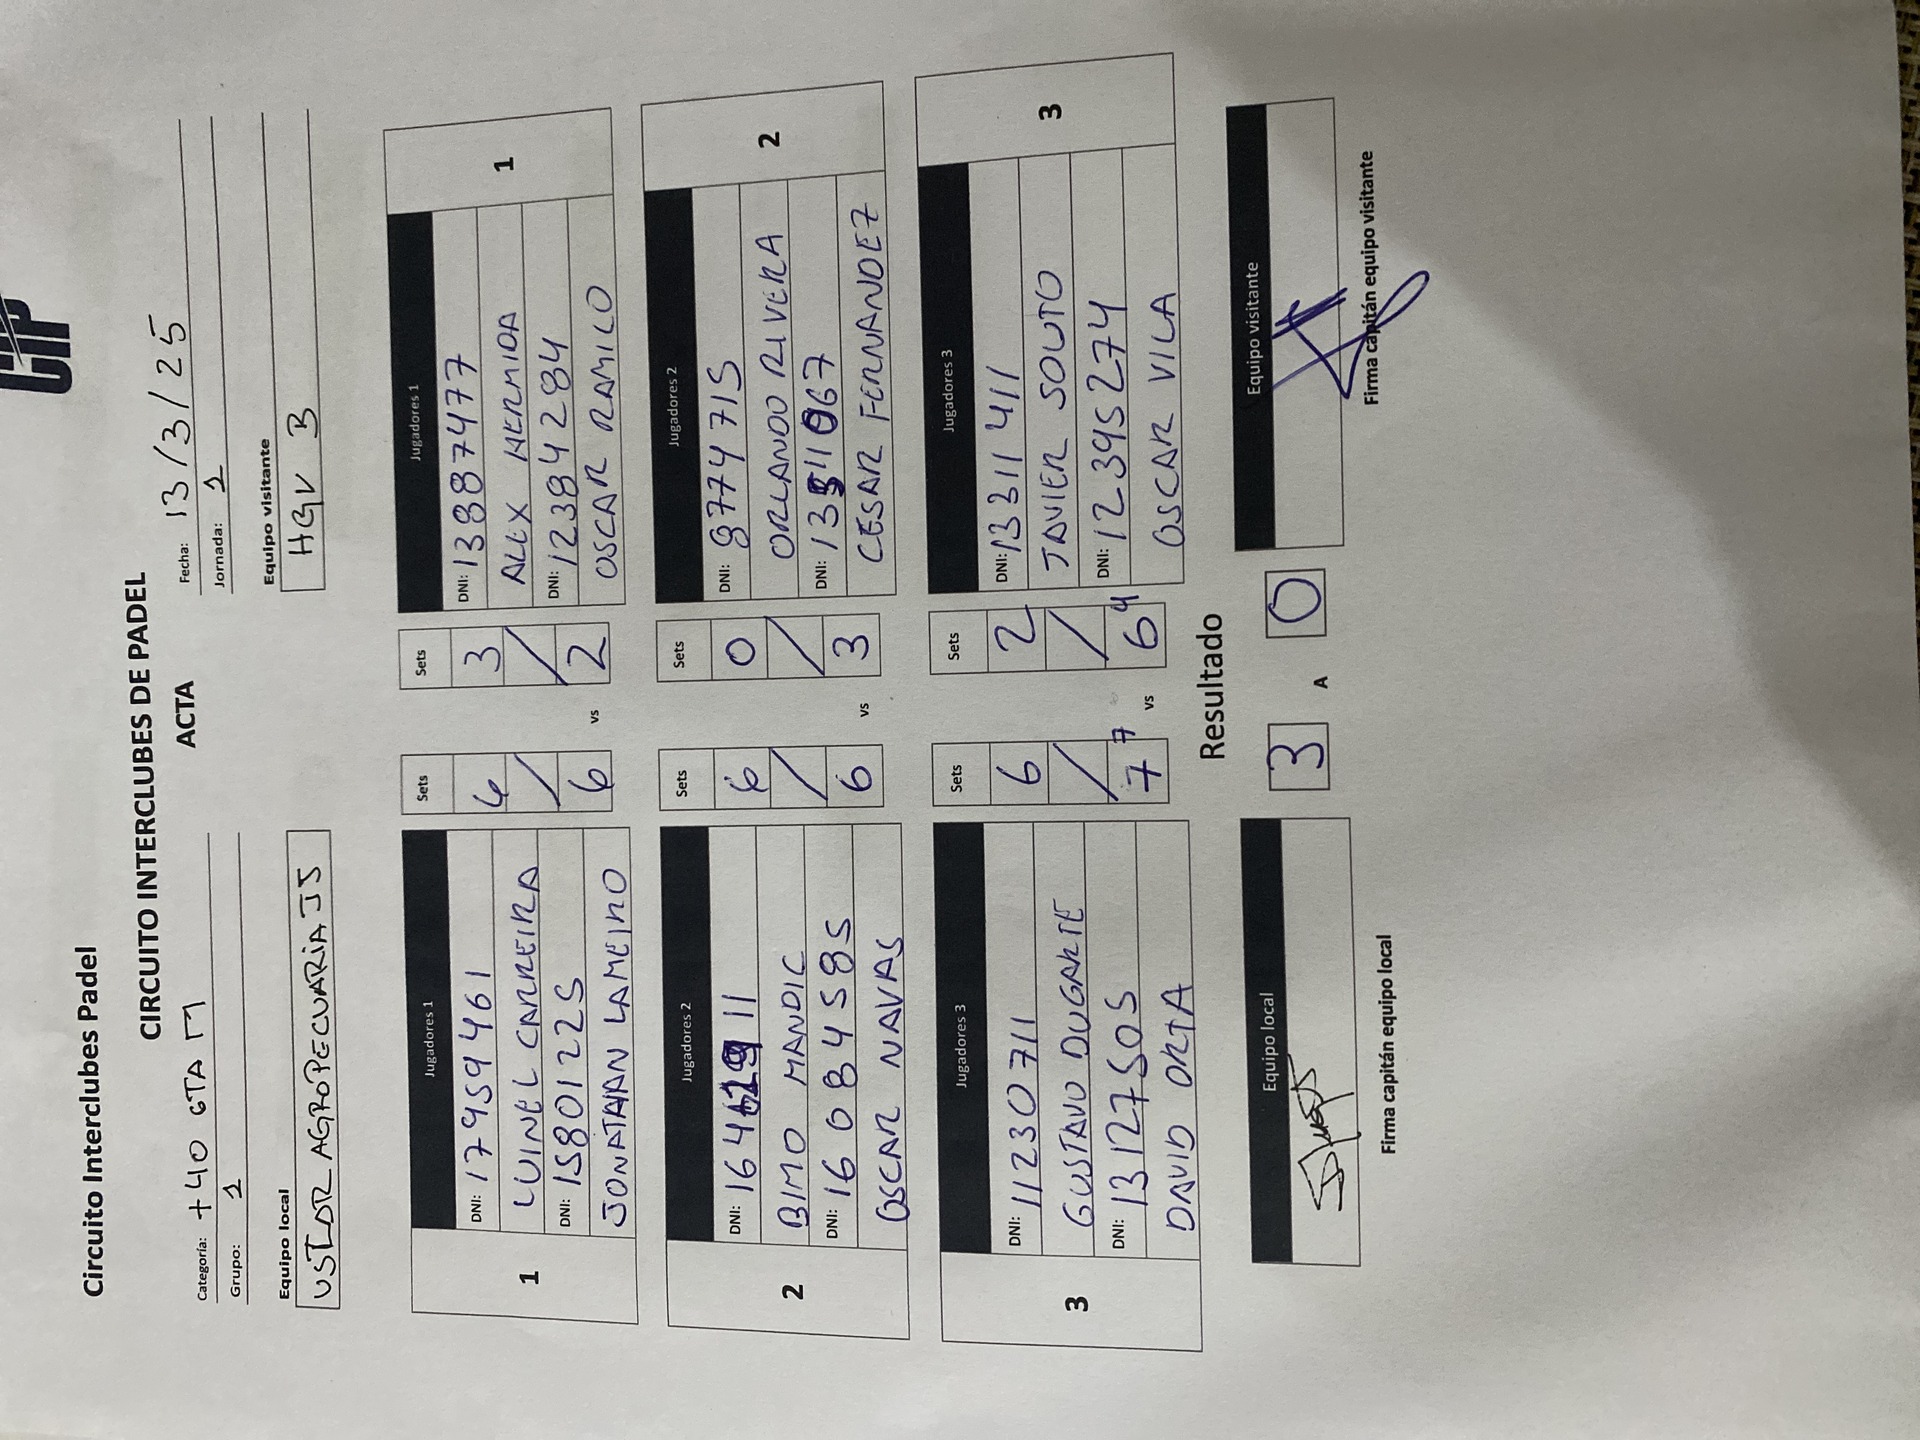 CIP
Circuito Interclubes Padel
CIRCUITO INTERCLUBES DE PADEL
ACTA
Categoría: +40 6TA M
Fecha: 13/3/25
Grupo: 1
Jornada: 1
Equipo local
Equipo visitante
USTDR AGROPECUARIA JJ
HGV B
Jugadores 1 Sets Sets Jugadores 1
1 DNI: 17959461 6 3 DNI: 13887477 1
LUINEL CARREIRA / / ALEX HERMIDA
DNI: 15801225 6 2 DNI: 12384284
JONATHAN LAMEIRO vs OSCAR RAMILO
Jugadores 2 Sets Sets Jugadores 2
2 DNI: 16462911 6 0 DNI: 8774715 2
BIMO MANDIC / / ORLANDO RIVERA
DNI: 16084585 6 3 DNI:
OSCAR NAVAS vs CESAR FERNANDEZ
Jugadores 3 Sets Sets Jugadores 3
3 DNI: 11230711 6 2 DNI: 13311411 3
GUSTAVO DUGARTE / / JAVIER SOUTO
DNI: 13127505 7 7 6 4 DNI: 12395274
DAVID ORTA vs OSCAR VILA
Resultado
Equipo local 3 A 0 Equipo visitante
Firma capitán equipo local
Firma capitán equipo visitante